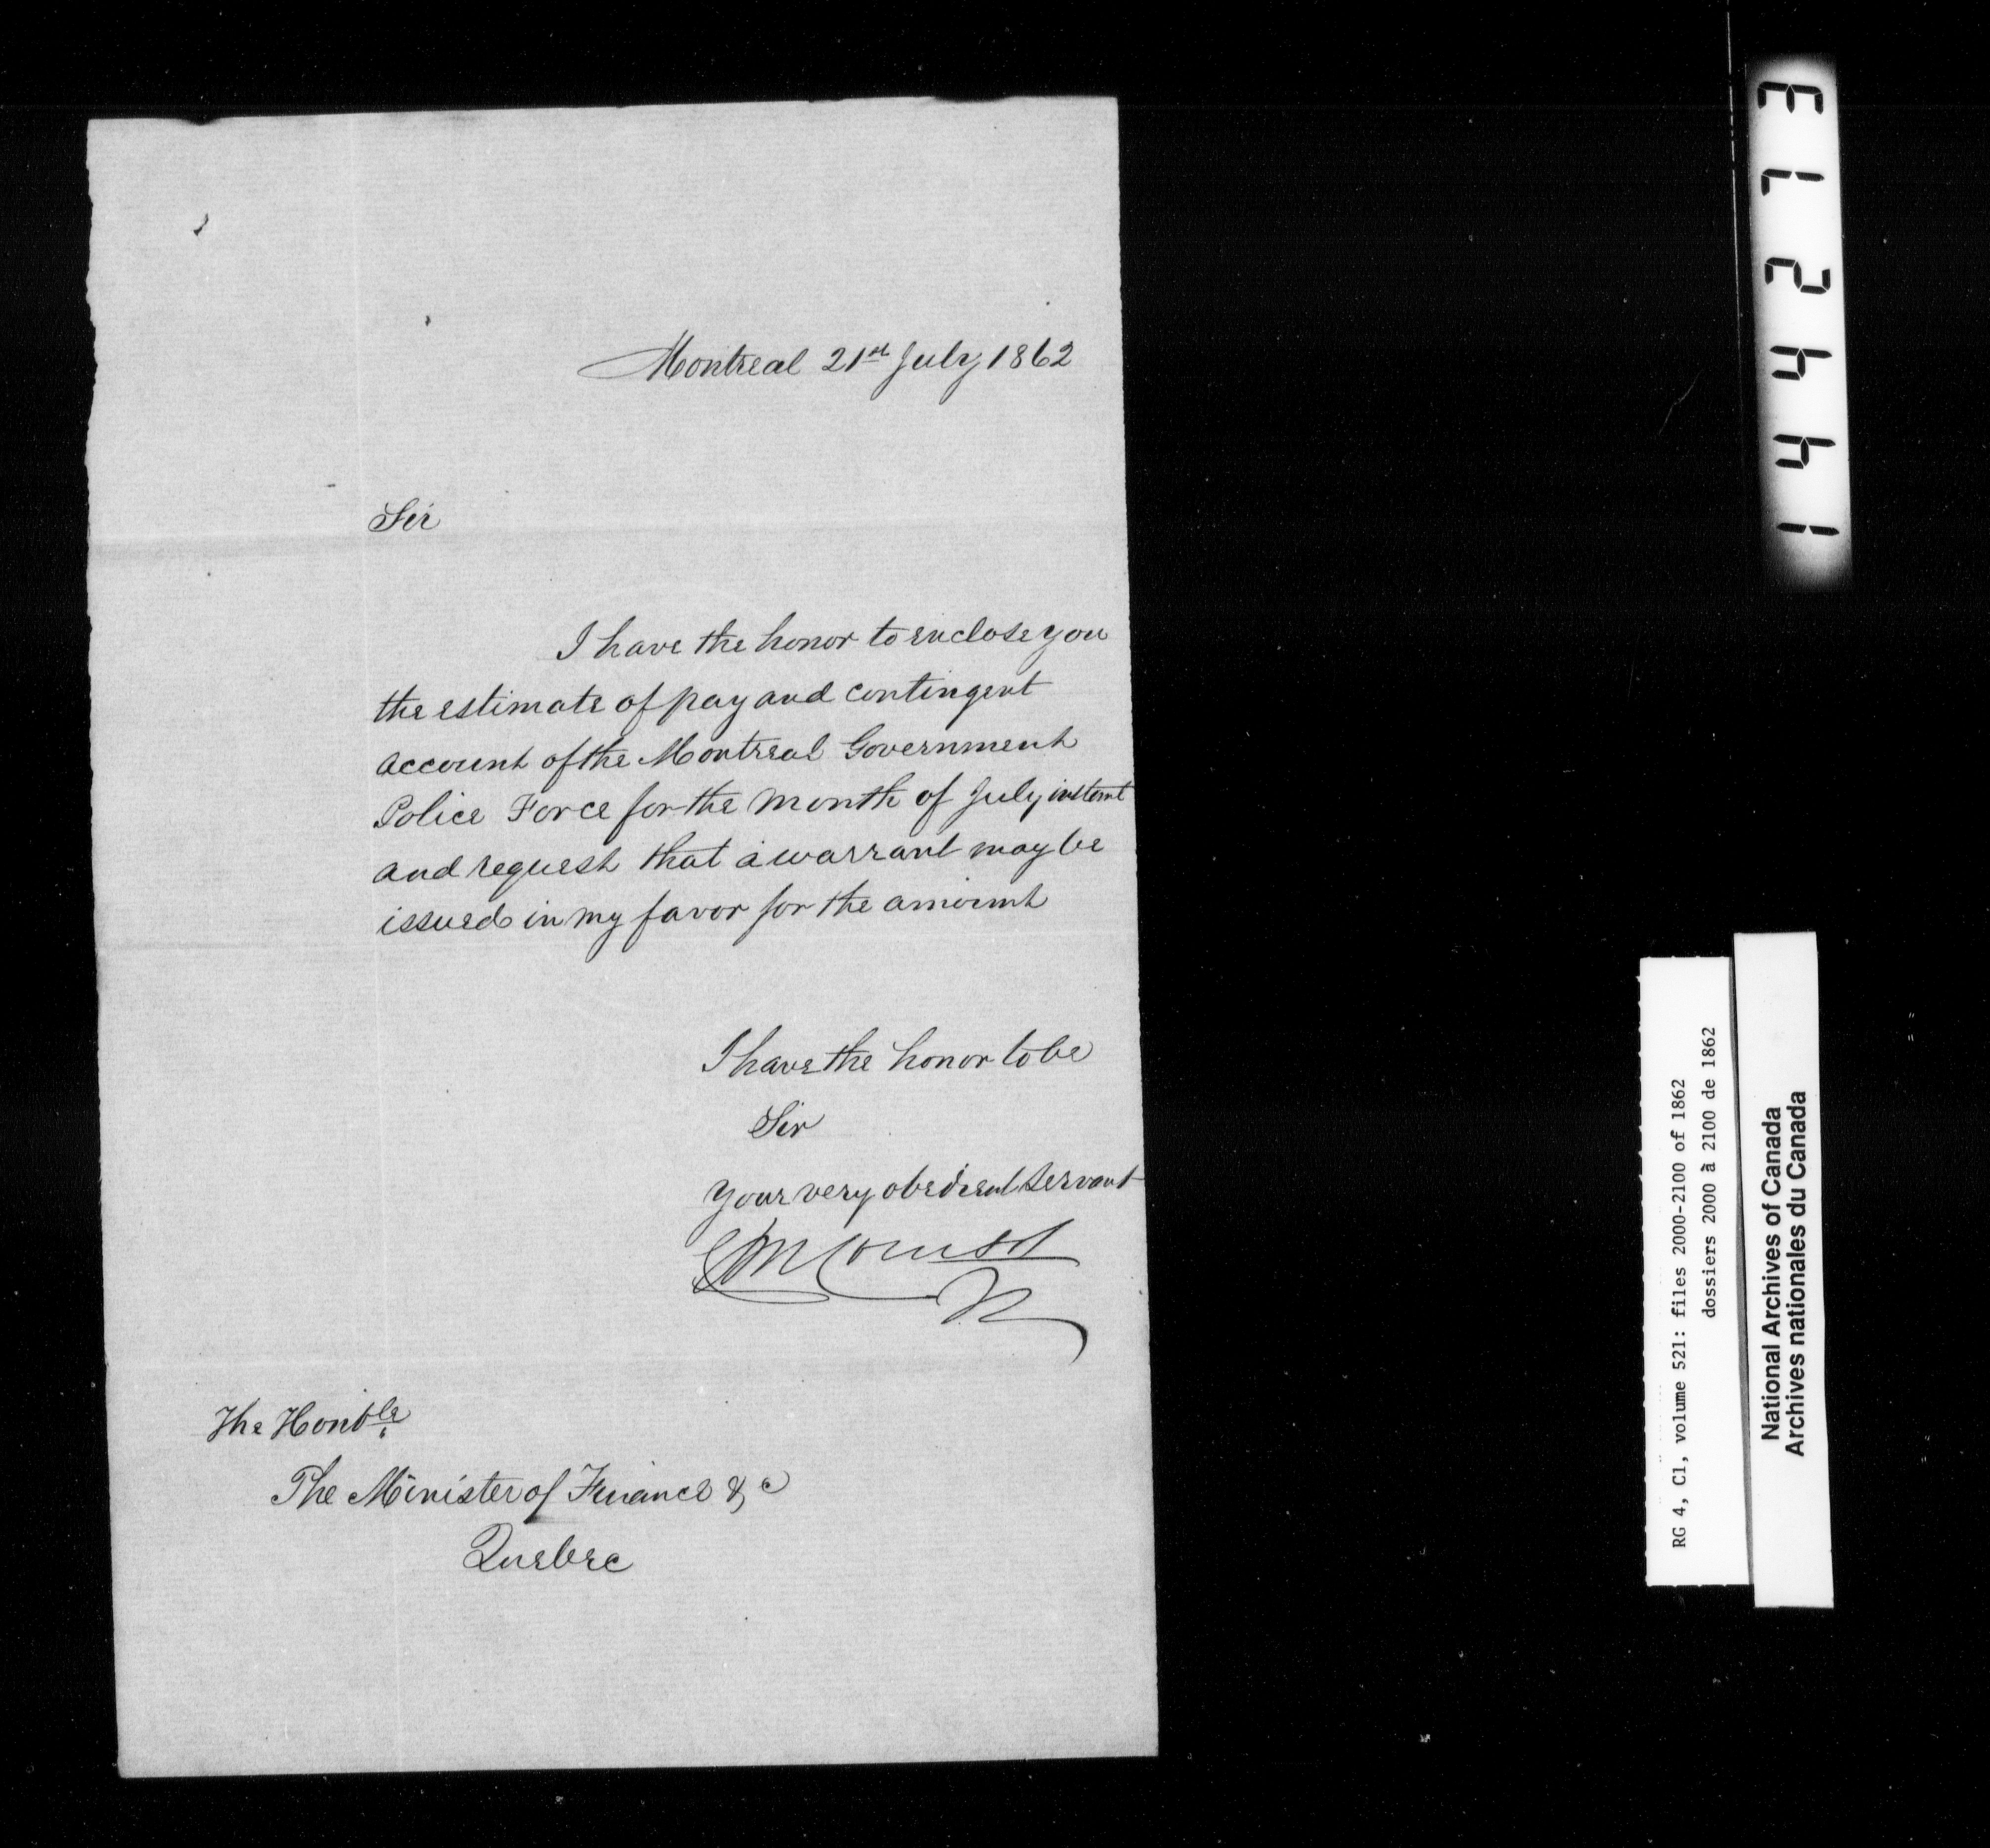 Montreal 21st July 1862
Sir
I have the honor to enclose you
the estimate of pay and contingent
account of the Montreal Government
Police Force for the month of July instant
and request that a warrant may be
issued in my favor for the amount
I have the honor to be
Sir
Your very obedient Servant
The Honble
The Minister of Finance &c
Quebec
144213
RG 4, C1, volume 521: files 2000-2100 of 1862
dossiers 2000 à 2100 de 1862
National Archives of Canada
Archives nationales du Canada